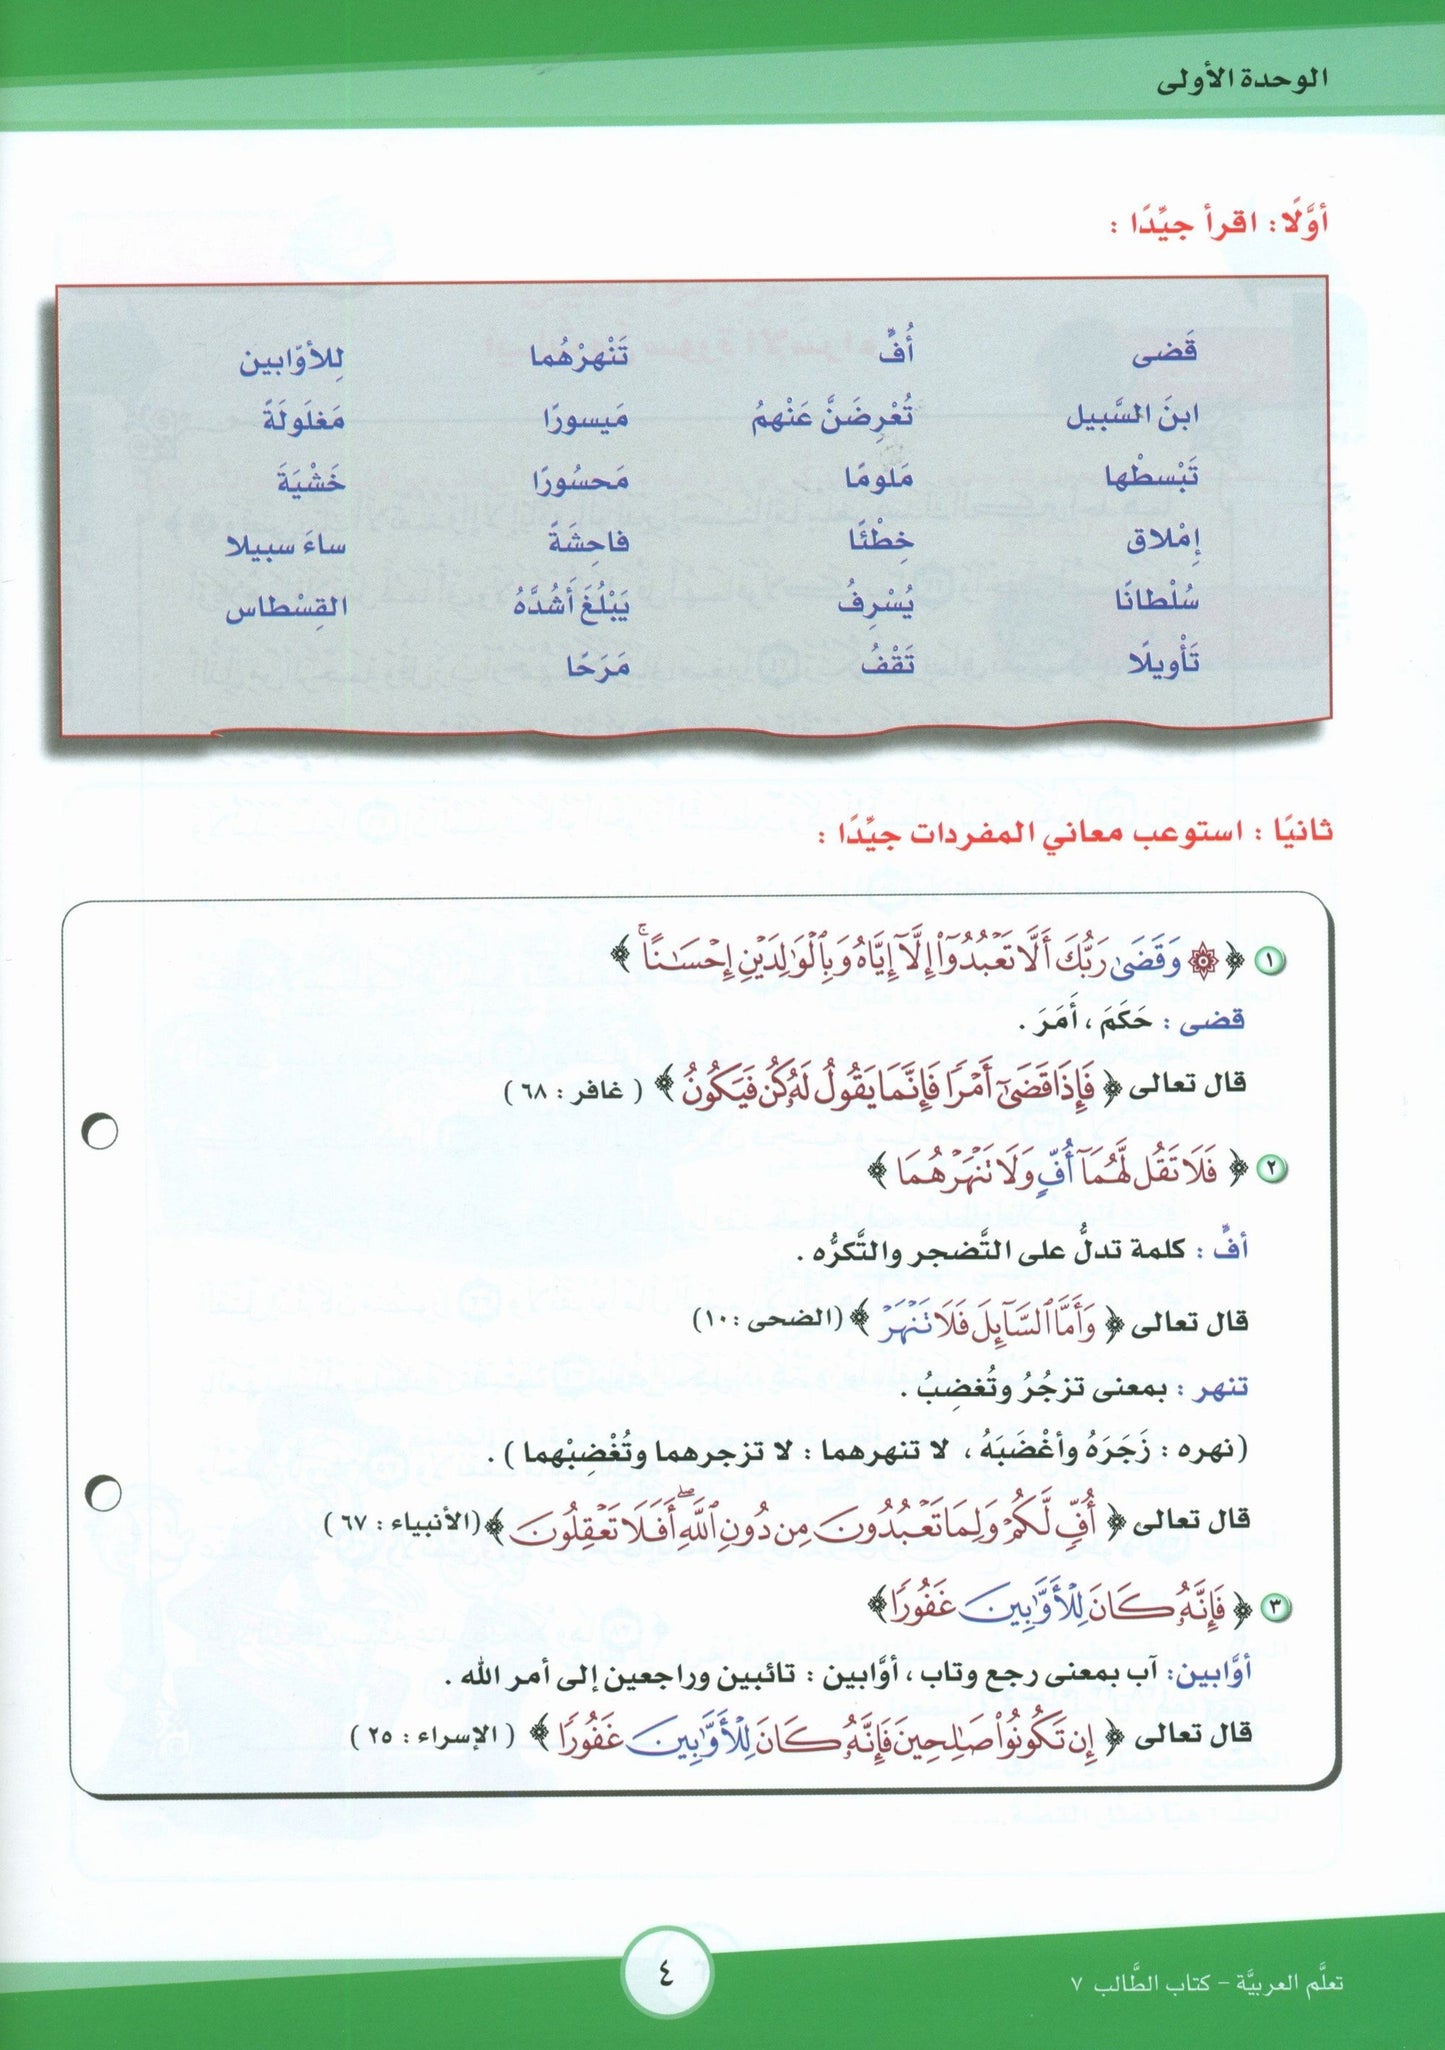 الوحدة الأولى
أوَّلًا: اقرأ جيِّدًا :
قَضى أُفٍّ تَنْهرْهُما لِلأوّابين
ابنَ السَّبيل تُعْرِضَنَّ عَنْهمُ مَيسورًا مَغلَولَةً
تَبْسطْها مَلومًا مَحسُورًا خَشْيَةَ
إِمْلاق خِطْئًا فاحِشَةً ساءَ سبيلا
سُلْطانًا يُسْرِفُ يَبْلُغَ أَشُدَّهُ القِسْطاس
تَأْويلًا تَقْفُ مَرَحًا
ثانيًا : استوعب معاني المفردات جيِّدًا :
١ ﴿ ۞ وَقَضَىٰ رَبُّكَ أَلَّا تَعْبُدُوٓا۟ إِلَّآ إِيَّاهُ وَبِٱلْوَٰلِدَيْنِ إِحْسَـٰنًا ۚ ﴾
قضى : حَكَمَ ، أَمَرَ .
قال تعالى ﴿ فَإِذَا قَضَىٰٓ أَمْرًا فَإِنَّمَا يَقُولُ لَهُۥ كُن فَيَكُونُ ﴾ ( غافر : ٦٨ )
٢ ﴿ فَلَا تَقُل لَّهُمَآ أُفٍّ وَلَا تَنْهَرْهُمَا ﴾
أفٍّ : كلمة تدلُّ على التَّضجر والتَّكرُّه .
قال تعالى ﴿ وَأَمَّا ٱلسَّآئِلَ فَلَا تَنْهَرْ ﴾ (الضحى : ١٠)
تنهر : بمعنى تزجُرُ وتُغضِبُ .
(نهره : زَجَرَهُ وأغْضَبَهُ ، لا تنهرهما : لا تزجرهما وتُغْضِبْهما ) .
قال تعالى ﴿ أُفٍّ لَّكُمْ وَلِمَا تَعْبُدُونَ مِن دُونِ ٱللَّهِ ۖ أَفَلَا تَعْقِلُونَ ﴾ (الأنبياء : ٦٧ )
٣ ﴿ فَإِنَّهُۥ كَانَ لِلْأَوَّٰبِينَ غَفُورًا ﴾
أوَّابين: آب بمعنى رجع وتاب ، أوَّابين : تائبين وراجعين إلى أمر الله .
قال تعالى ﴿ إِن تَكُونُوا۟ صَـٰلِحِينَ فَإِنَّهُۥ كَانَ لِلْأَوَّٰبِينَ غَفُورًا ﴾ ( الإسراء : ٢٥ )
تعلَّم العربيَّة – كتاب الطَّالب ٧
٤